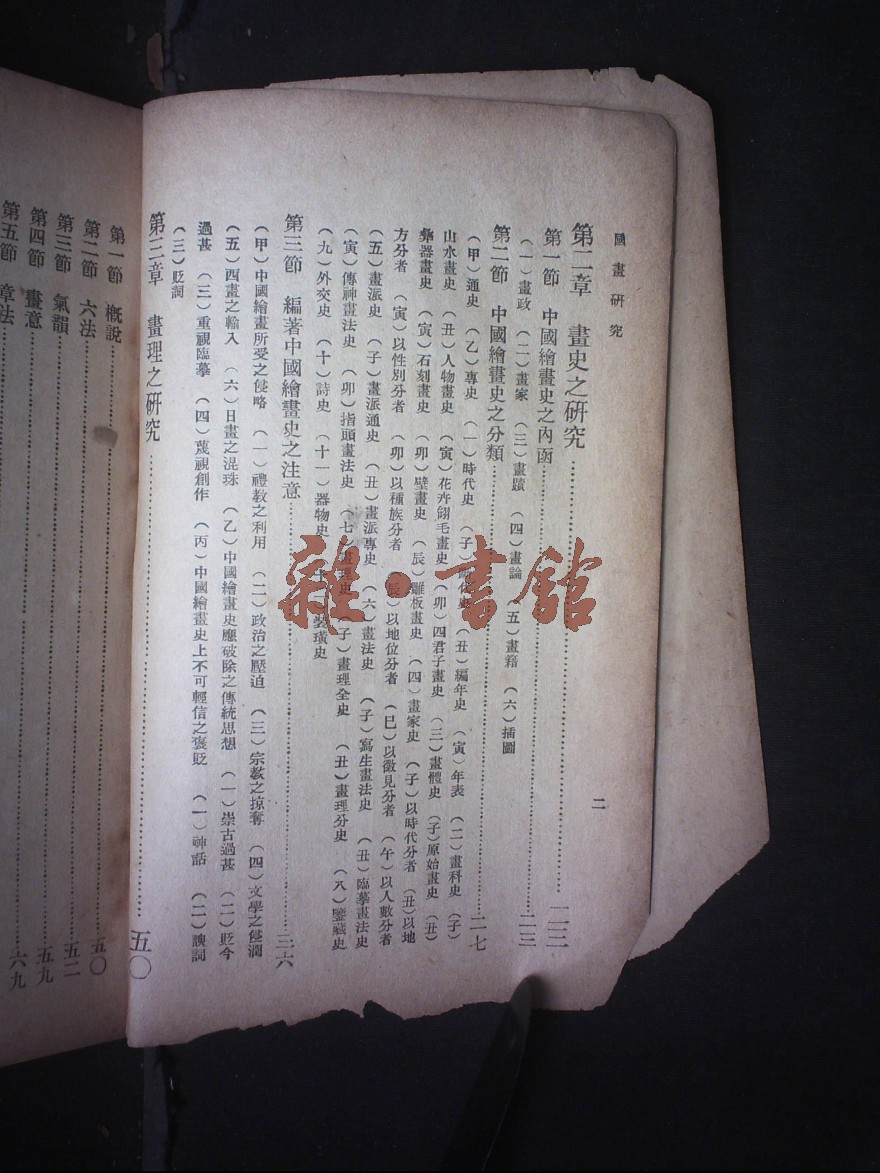 國畫研究
二
第二章　畫史之研究……二三
第一節　中國繪畫史之內函……二三
（一）畫政　（二）畫家　（三）畫蹟　（四）畫論　（五）畫籍　（六）插圖
第二節　中國繪畫史之分類……二七
（甲）通史　（乙）專史　（一）時代史　（子）斷代史　（丑）編年史　（寅）年表　（二）畫科史　（子）
山水畫史　（丑）人物畫史　（寅）花卉翎毛畫史　（卯）四君子畫史　（三）畫體史　（子）原始畫史　（丑）
彝器畫史　（寅）石刻畫史　（卯）壁畫史　（辰）雕板畫史　（四）畫家史　（子）以時代分者　（丑）以地
方分者　（寅）以性別分者　（卯）以種族分者　（辰）以地位分者　（巳）以徵見分者　（午）以人數分者
（五）畫派史　（子）畫派通史　（丑）畫派專史　（六）畫法史　（子）寫生畫法史　（丑）臨摹畫法史
（寅）傳神畫法史　（卯）指頭畫法史　（七）畫理史　（子）畫理全史　（丑）畫理分史　（八）鑒藏史
（九）外交史　（十）詩史　（十一）器物史　裝璜史
第三節　編著中國繪畫史之注意……三六
（甲）中國繪畫所受之侵略　（一）禮教之利用　（二）政治之壓迫　（三）宗教之掠奪　（四）文學之侵潤
（五）西畫之輸入　（六）日畫之混珠　（乙）中國繪畫史應破除之傳統思想　（一）崇古過甚　（二）貶今
過甚　（三）重視臨摹　（四）蔑視創作　（丙）中國繪畫史上不可輕信之褒貶　（一）神話　（二）諛詞
（三）貶詞
第三章　畫理之研究……五〇
第一節　概說……五〇
第二節　六法……五二
第三節　氣韻……五九
第四節　畫意……六九
第五節　章法……
雜·書館